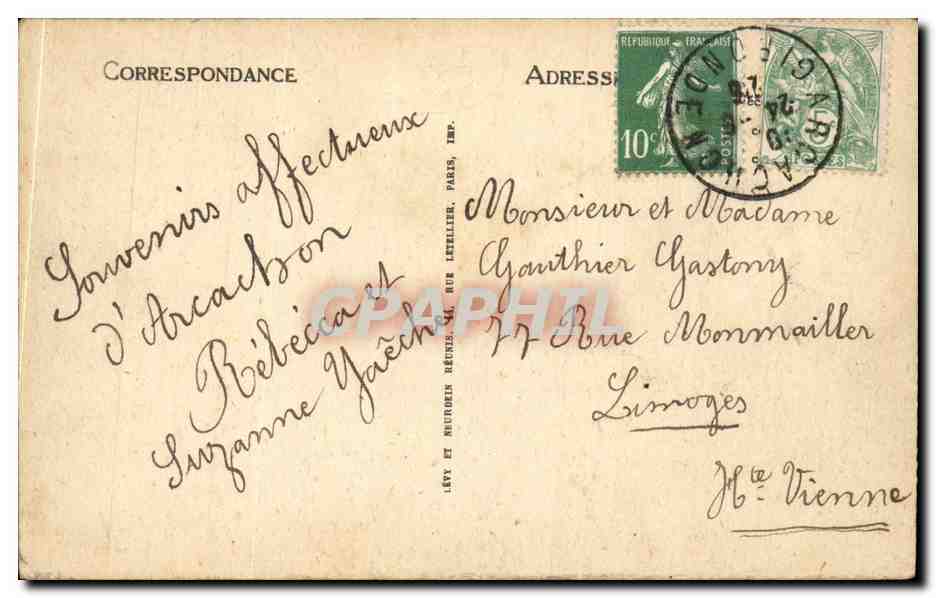 CORRESPONDANCE
ADRESSE
RÉPUBLIQUE FRANÇAISE
10c
POSTES
ARCACHON
GIRONDE
Souvenirs affectueux
d'Arcachon
Rébécca et
Suzanne Yaêche
LÉVY ET NEURDEIN RÉUNIS, 44, RUE LETELLIER, PARIS, IMP.
Monsieur et Madame
Gauthier Gastony
77 Rue Monmailler
Limoges
Hte Vienne
CPAPHIL